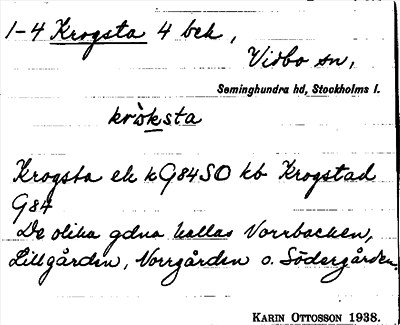 1-4 Krogsta 4 bek,
Vidbo sn,
Seminghundra hd, Stockholms l.
krò̱ksta
Krogsta ek kG84SO kb Krogstad
G84
De olika gdna kallas Vorrbacken,
Lillgården, Norrgården o. Södergården.
KARIN OTTOSSON 1938.